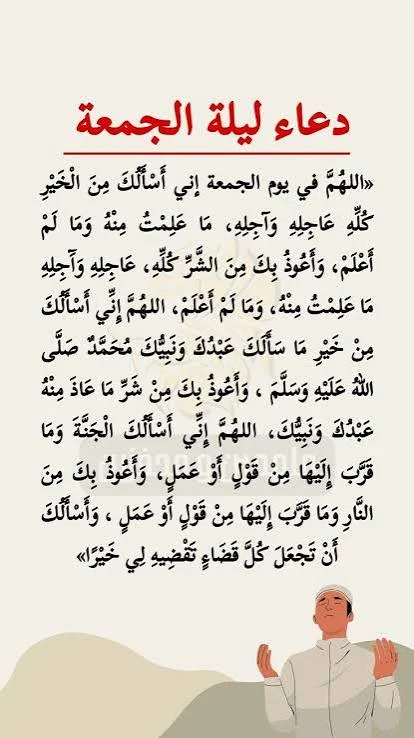 دعاء ليلة الجمعة
«اللهُمَّ في يوم الجمعة إني أَسْأَلُكَ مِنَ الْخَيْرِ
كُلِّهِ عَاجِلِهِ وَآجِلِهِ، مَا عَلِمْتُ مِنْهُ وَمَا لَمْ
أَعْلَمْ، وَأَعُوذُ بِكَ مِنَ الشَّرِّ كُلِّهِ، عَاجِلِهِ وَآجِلِهِ
مَا عَلِمْتُ مِنْهُ، وَمَا لَمْ أَعْلَمْ، اللهُمَّ إِنِّي أَسْأَلُكَ
مِنْ خَيْرِ مَا سَأَلَكَ عَبْدُكَ وَنَبِيُّكَ مُحَمَّدٌ صَلَّى
اللهُ عَلَيْهِ وَسَلَّمَ ، وَأَعُوذُ بِكَ مِنْ شَرِّ مَا عَاذَ مِنْهُ
عَبْدُكَ وَنَبِيُّكَ، اللهُمَّ إِنِّي أَسْأَلُكَ الْجَنَّةَ وَمَا
قَرَّبَ إِلَيْهَا مِنْ قَوْلٍ أَوْ عَمَلٍ، وَأَعُوذُ بِكَ مِنَ
النَّارِ وَمَا قَرَّبَ إِلَيْهَا مِنْ قَوْلٍ أَوْ عَمَلٍ ، وَأَسْأَلُكَ
أَنْ تَجْعَلَ كُلَّ قَضَاءٍ تَقْضِيهِ لِي خَيْرًا»